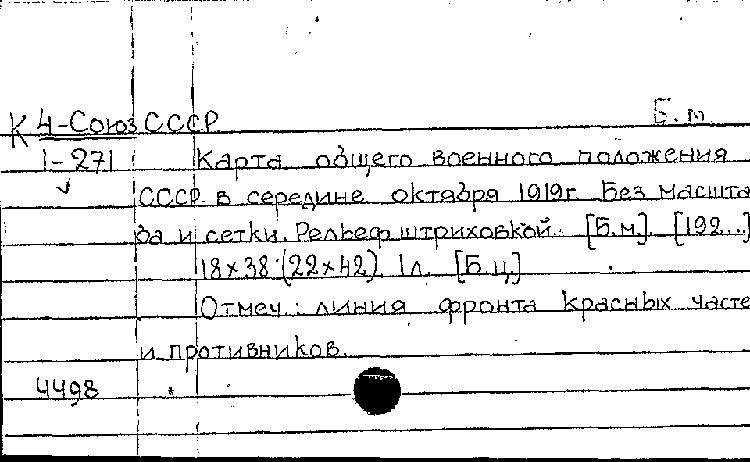 К 4-Союз СССР Б.м
1-271 Карта общего военного положения
СССР в середине октября 1919г Без масшта
ба и сетки. Рельеф штриховкой. [Б.м]. [192...]
18×38 (22×42). 1л. [Б.ц.]
Отмеч.: линия фронта Красных часте
и противников.
4498